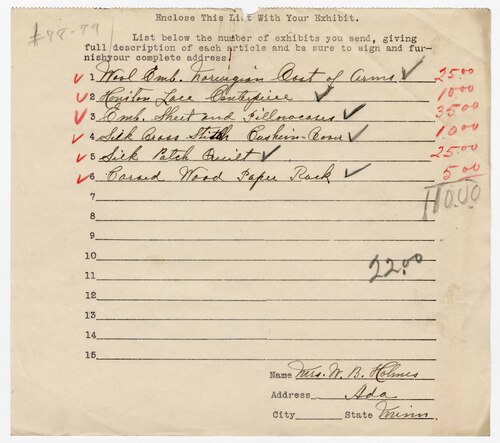 #98-99
Enclose This List With Your Exhibit.
List below the number of exhibits you send, giving
full description of each article and be sure to sign and fur-
nishyour complete address!
1 Wool Emb. Norwegian Coat of Arms ✓ 25.00
2 Honiton Lace Centerpiece ✓ 10.00
3 Emb. Sheet and Pillowcases ✓ 35.00
4 Silk Cross Stitch Cushion Cover ✓ 10.00
5 Silk Patch Quilt ✓ 25.00
6 Carved Wood Paper Rack ✓ 5.00
7 110.00
8
9
10 22.00
11
12
13
14
15
Name Mrs. W. B. Holmes
Address Ada
City State Minn.